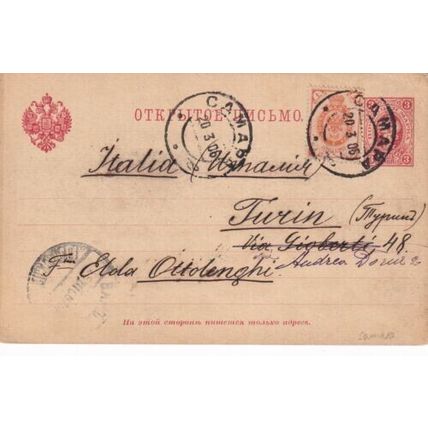 ОТКРЫТОЕ ПИСЬМО.
САМАРА
20 3 06
САМАРА
20 3 06
3
3
Italia Италія
Turin (Туринъ)
Via Gioberti 48
Andrea Doria 2
Elda Ottolenghi
На этой сторонѣ пишется только адресъ.
Samara